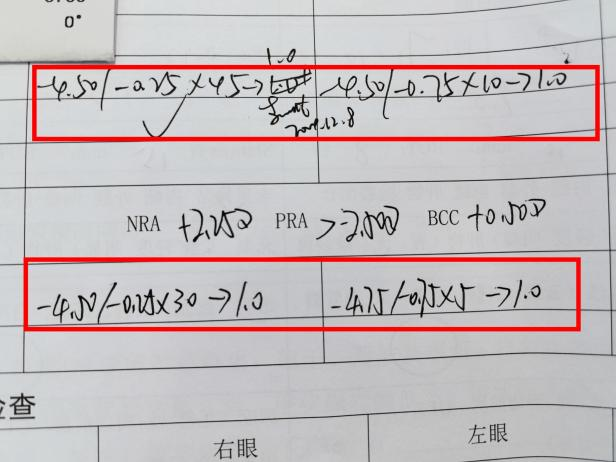 0°
1.0
-4.50/-0.25×45→ -4.50/-0.75×10→1.0
NRA +2.25D PRA >-2.50D BCC +0.50D
-4.50/-0.25×30→1.0 -4.75/-0.75×5→1.0
检查
右眼 左眼